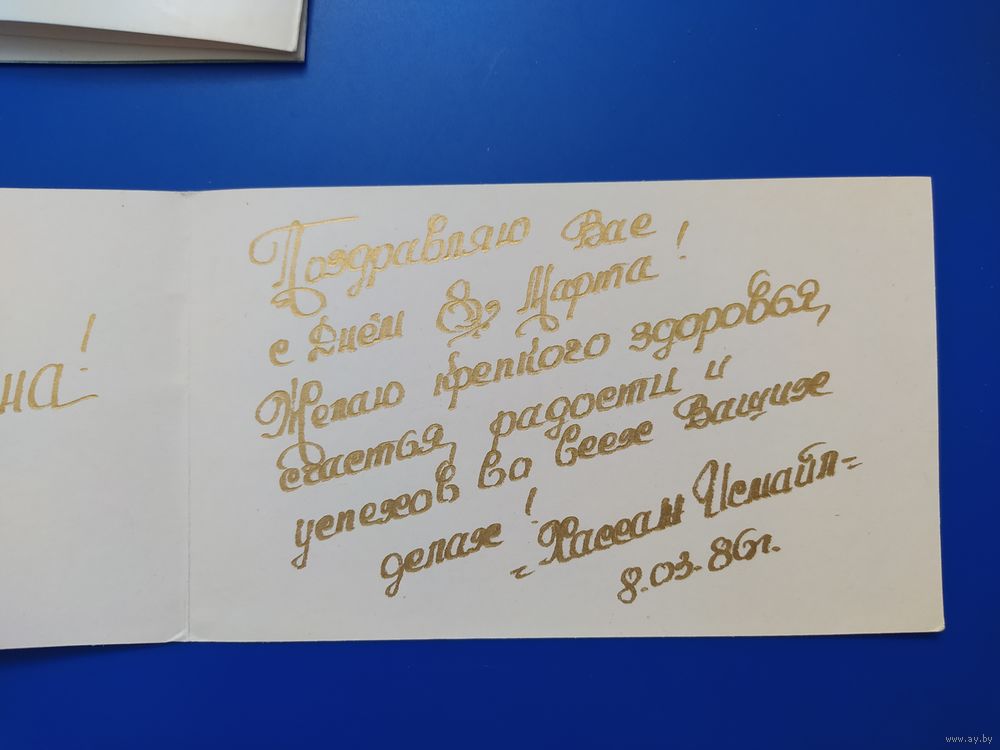 на!
Поздравляю Вас
с Днём 8го Марта!
Желаю крепкого здоровья,
счастья, радости и
успехов во всех Ваших
делах!
- Хассан Исмаил -
8.03.86г.
www.ay.by